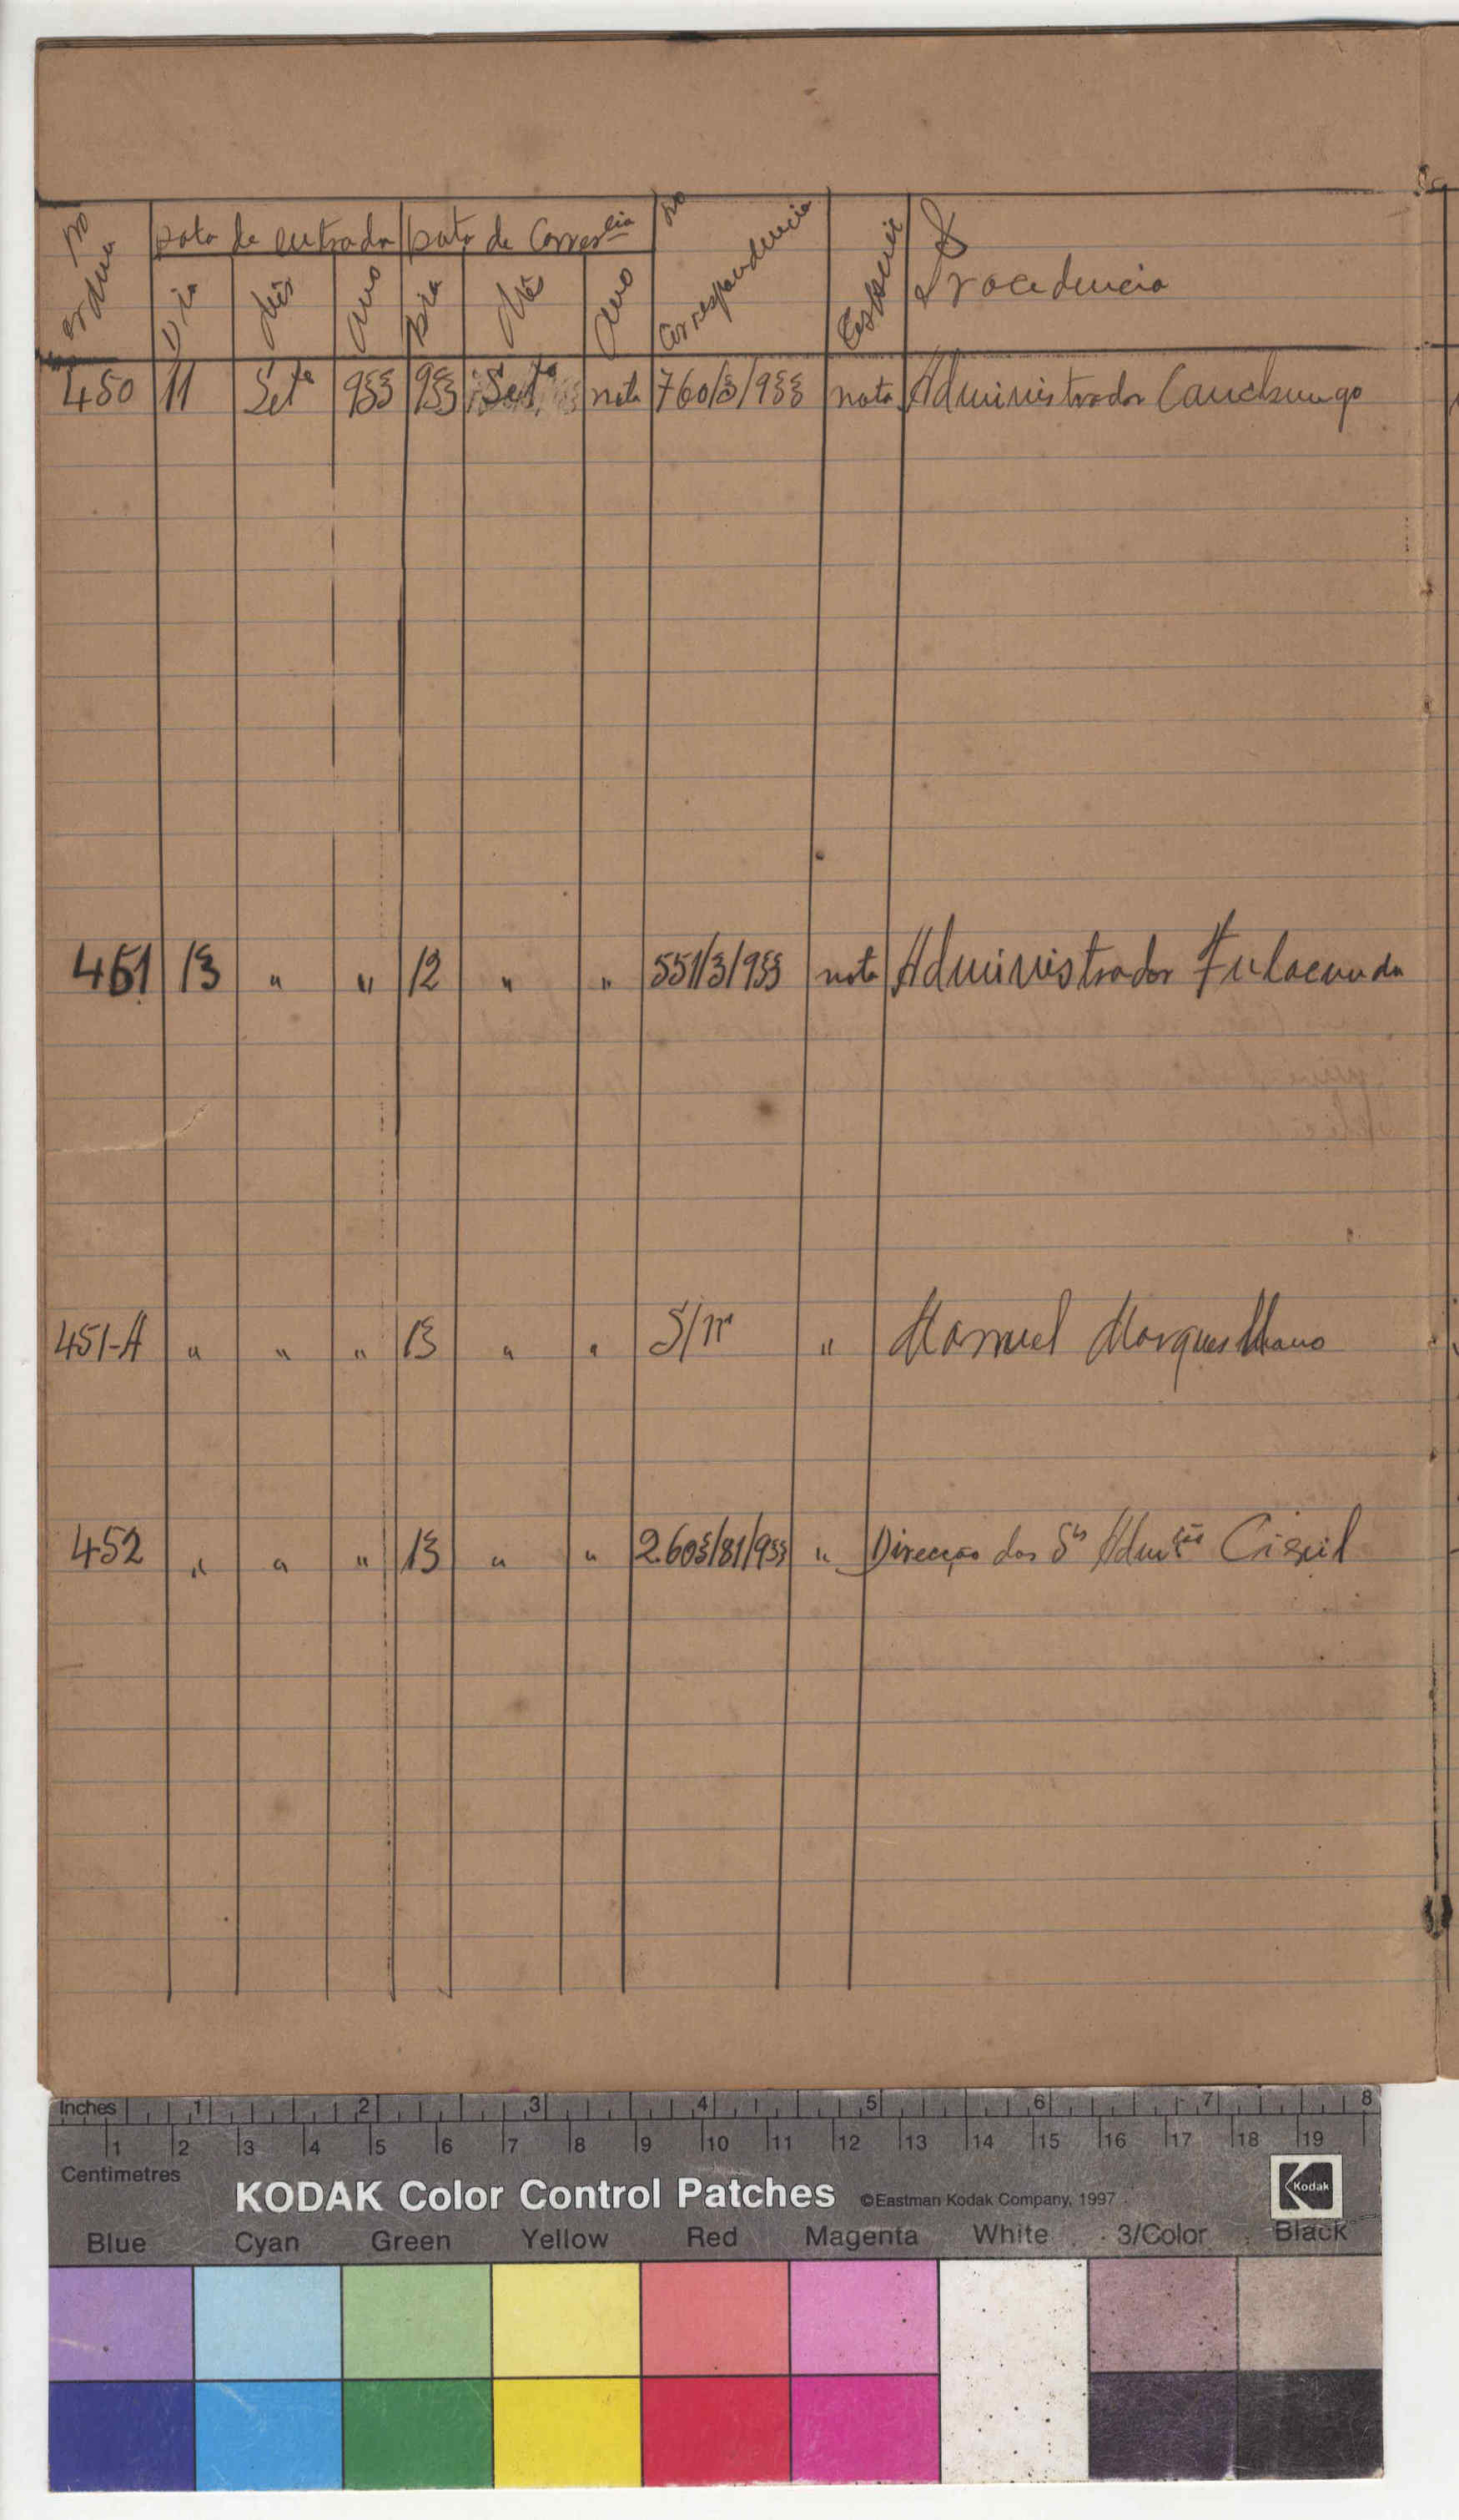 no ordem | Data de entrada | Data de Corres.cia | no Correspondencia | Especie | Procedencia
Dia | Mês | Ano | Dia | Mês | Ano
450 11 Setº 933 933 Setº nota 760/3/933 nota Administrador Canchungo
451 13 " " 12 " " 551/3/933 nota Administrador Fulacunda
451-A " " " 13 " " S/nº " Manuel Marques Mano
452 " " " 13 " " 2.603/81/933 " Direcção dos Sºs Admções Civil
Inches 1 2 3 4 5 6 7 8
1 2 3 4 5 6 7 8 9 10 11 12 13 14 15 16 17 18 19
Centimetres
KODAK Color Control Patches ©Eastman Kodak Company, 1997 Kodak
Blue Cyan Green Yellow Red Magenta White 3/Color Black